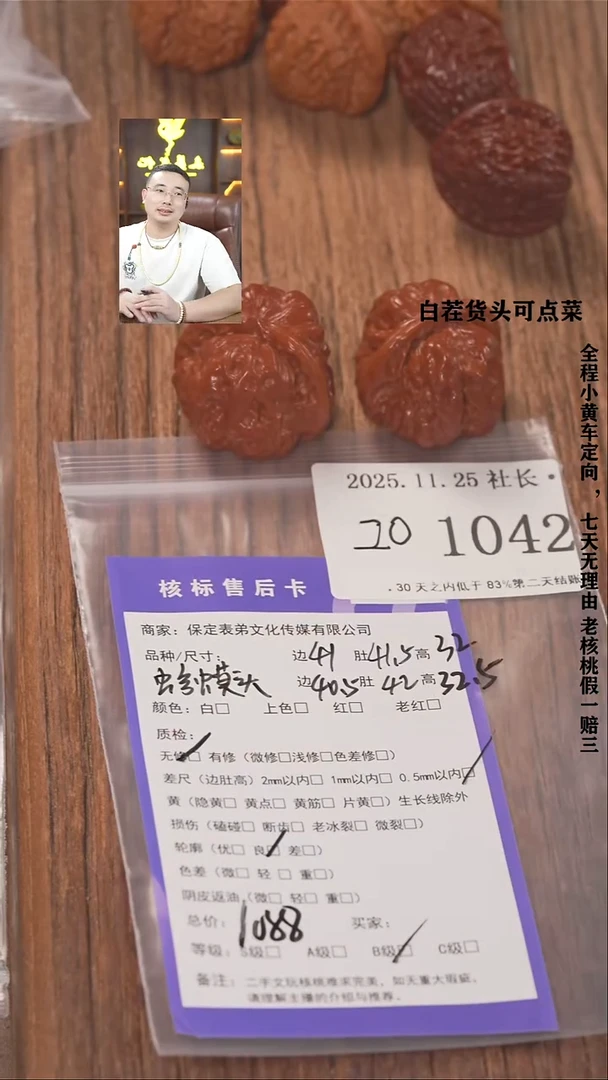 白茬货头可点菜
全程小黄车定向，七天无理由 老核桃假一赔三
2025.11.25 社长·
20 1042
.30天之内低于83%第二天结账
核标售后卡
商家：保定表弟文化传媒有限公司
品种/尺寸： 边41 肚41.5高32
蛤蟆头 边40.5肚 42高32.5
颜色：白□ 上色□ 红□ 老红□
质检：
无修□ 有修（微修□浅修□色差修□）
差尺（边肚高）2mm以内□ 1mm以内□ 0.5mm以内□
黄（隐黄□ 黄点□ 黄筋□ 片黄□）生长线除外
损伤（磕碰□ 断齿□ 老冰裂□ 微裂□）
轮廓（优□ 良□ 差□）
色差（微□ 轻□ 重□）
阴皮返油（微□ 轻□ 重□）
总价：1088 买家：
等级：S级□ A级□ B级□ C级□
备注：二手文玩核桃难求完美，如无重大瑕疵，
请理解主播的介绍与推荐。